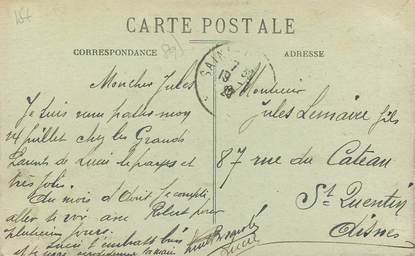 CARTE POSTALE
CORRESPONDANCE
ADRESSE
Mon cher Jules
Je suis venu passer mon
14 juillet chez les Grands
Parents de Lucie le pays est
très joli.
Au mois d'Août Je compte
aller te voir avec Robert pour
plusieurs jours.
Lucie t'embrasse bien
Lucie
Monsieur
Jules Lemaire fils
87 rue du Cateau
St Quentin
Aisne